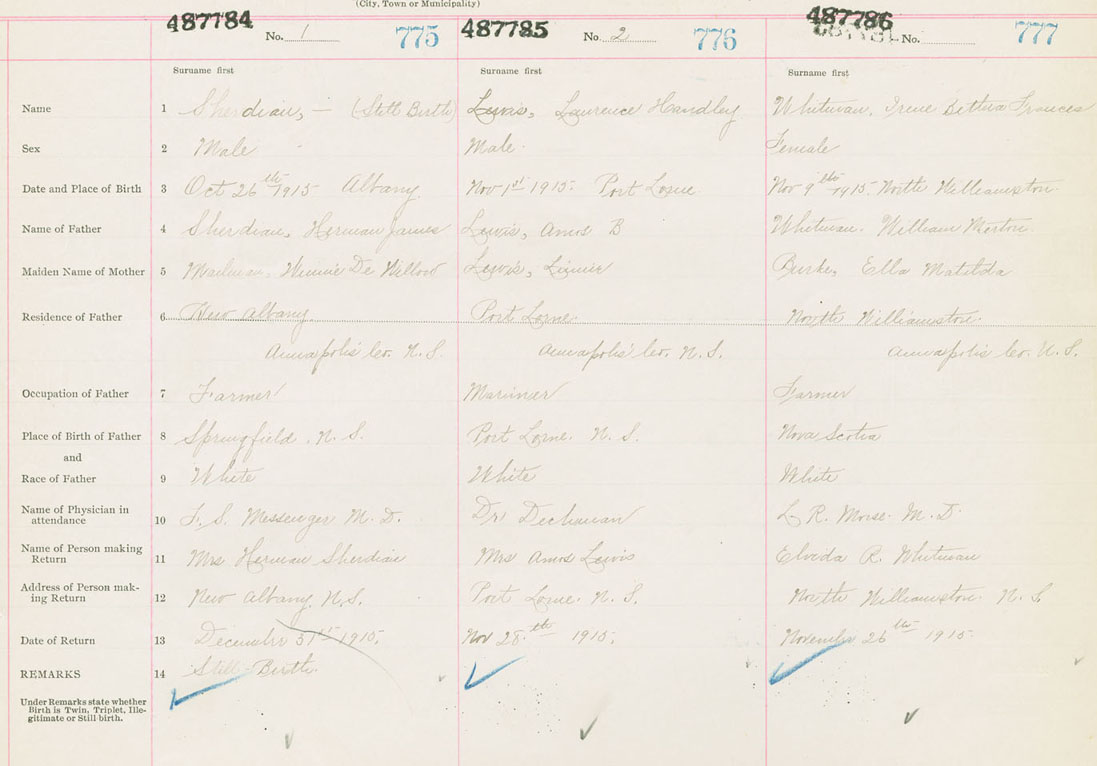 (City, Town or Municipality)
487784 No. 1 775 487785 No. 2 776 487786 No. 777
Surname first Surname first Surname first
Name 1 Sherdian, — (Still Birth) Lewis, Laurence Handley Whitman, Irene Bettina Frances
Sex 2 Male Male Female
Date and Place of Birth 3 Oct 26th 1915 Albany Nov 1st 1915. Port Lorne Nov 9th 1915. North Williamston.
Name of Father 4 Sherdian, Herman James Lewis, Amos B Whitman. William Morton.
Maiden Name of Mother 5 Mailman, Winnie De Lewis, Burke, Ella Matilda
Residence of Father 6 New Albany Port Lorne North Williamston.
Annapolis Co. N. S. Annapolis Co. N. S. Annapolis Co. N. S.
Occupation of Father 7 Farmer Mariner Farmer
Place of Birth of Father 8 Springfield, N. S. Port Lorne. N. S. Nova Scotia
and
Race of Father 9 White White White
Name of Physician in
attendance 10 F. S. Messenger M. D. Dr. L. R. Morse. M. D.
Name of Person making
Return 11 Mrs Herman Sherdian Mrs Amos Lewis R. Whitman
Address of Person mak-
ing Return 12 New Albany, N.S. Port Lorne. N. S. North Williamston. N. S.
Date of Return 13 December 31st 1915. Nov 28th 1915. November 26th 1915.
REMARKS 14 Still Birth
Under Remarks state whether
Birth is Twin, Triplet, Ille-
gitimate or Still birth.